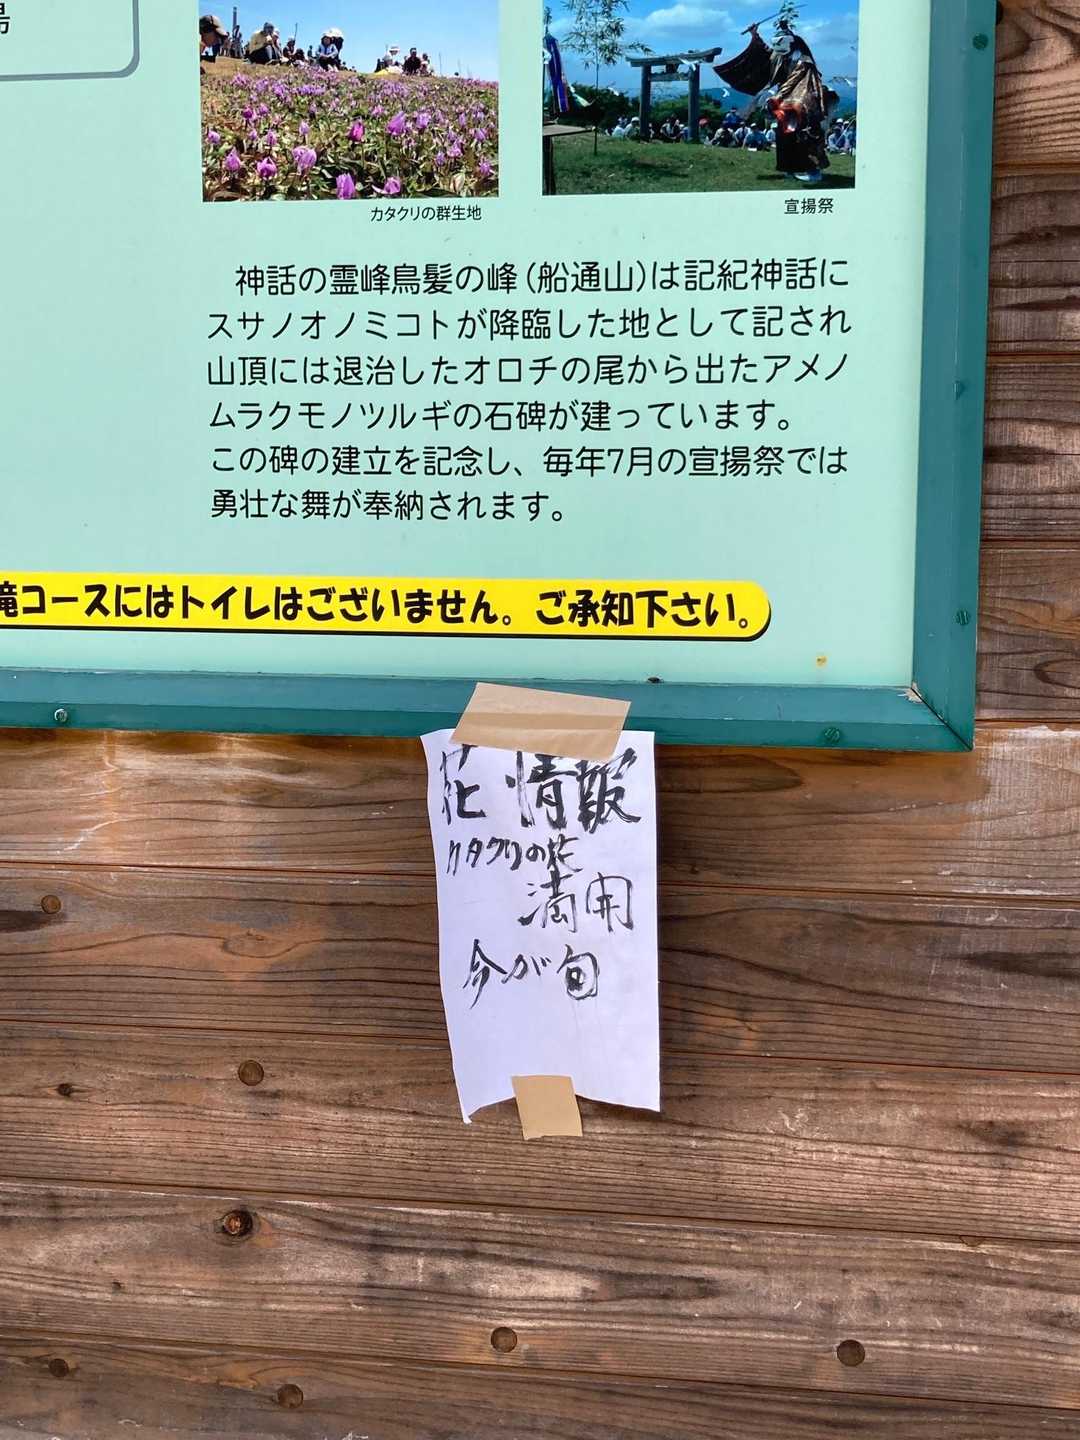 カタクリの群生地
宣揚祭
神話の霊峰鳥髪の峰(船通山)は記紀神話に
スサノオノミコトが降臨した地として記され
山頂には退治したオロチの尾から出たアメノ
ムラクモノツルギの石碑が建っています。
この碑の建立を記念し、毎年7月の宣揚祭では
勇壮な舞が奉納されます。
滝コースにはトイレはございません。ご承知下さい。
花情報
カタクリの花
満開
今が旬